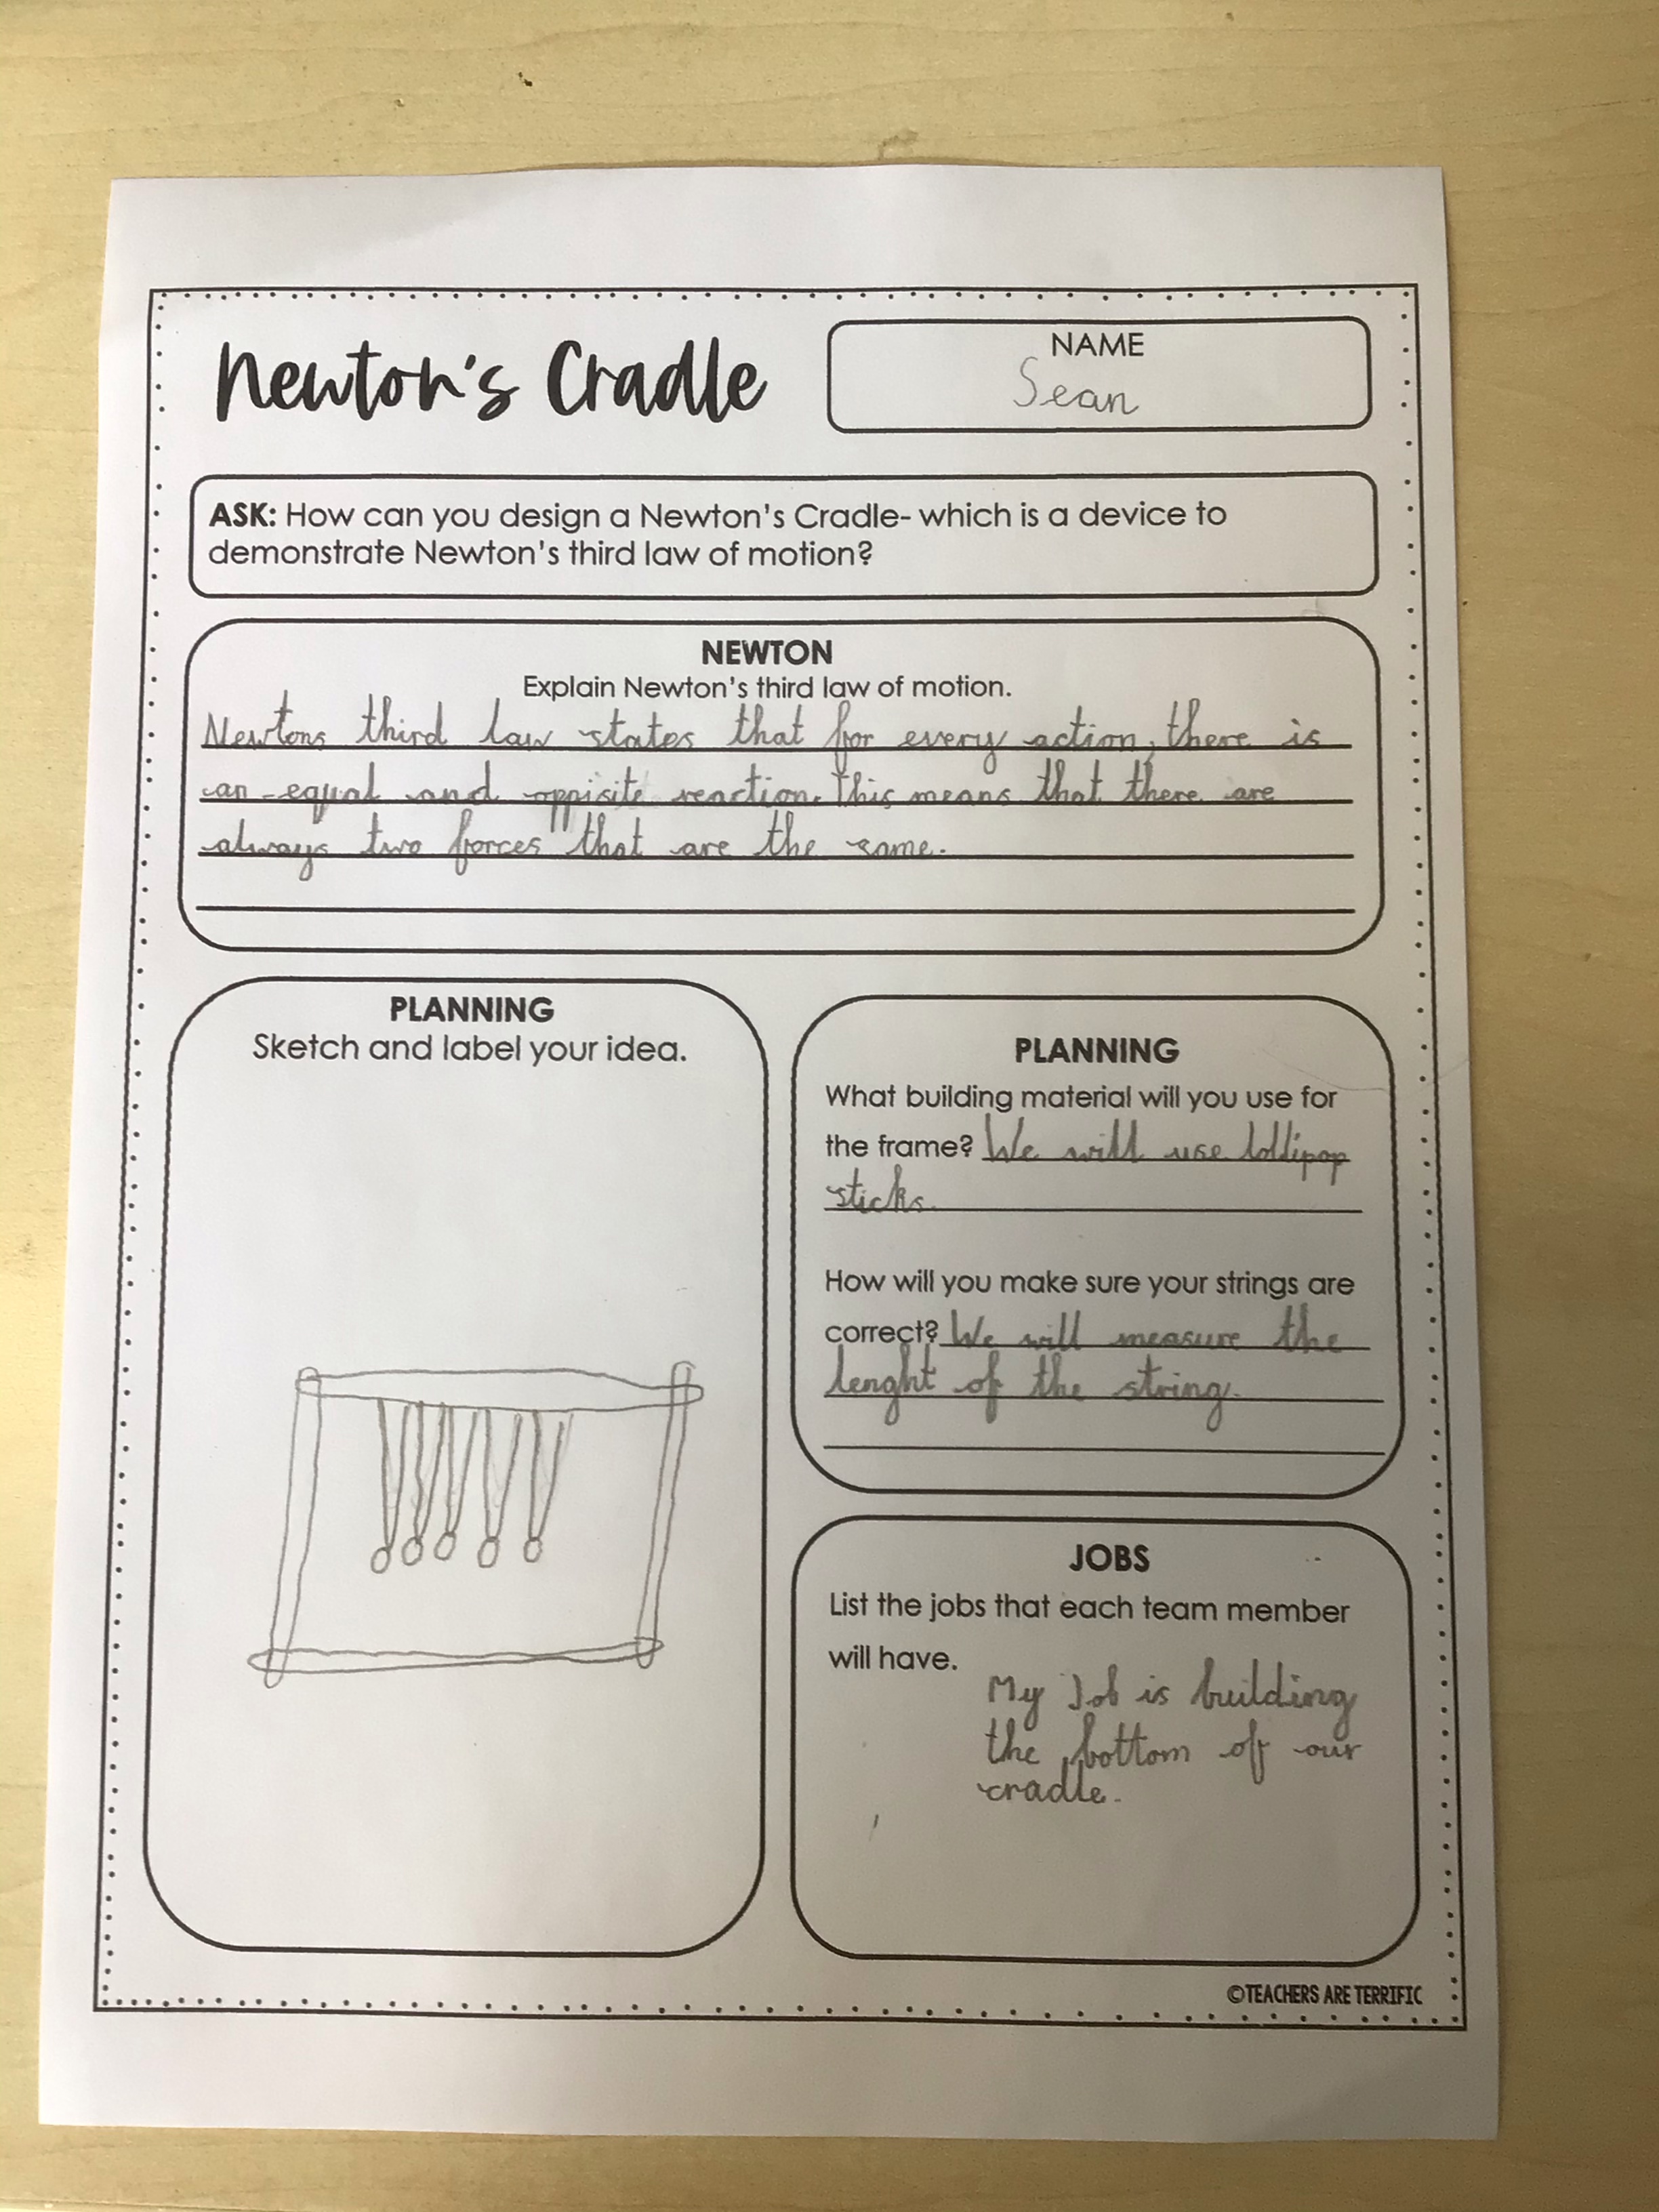 Newton's Cradle
NAME
Sean
ASK: How can you design a Newton's Cradle- which is a device to
demonstrate Newton's third law of motion?
NEWTON
Explain Newton's third law of motion.
Newtons third law states that for every action, there is
an equal and oppisite reaction. This means that there are
always two forces that are the same.
PLANNING
Sketch and label your idea.
PLANNING
What building material will you use for
the frame? We will use lollipop
sticks.
How will you make sure your strings are
correct? We will measure the
lenght of the string.
JOBS
List the jobs that each team member
will have.
My Job is building
the bottom of our
cradle.
©TEACHERS ARE TERRIFIC